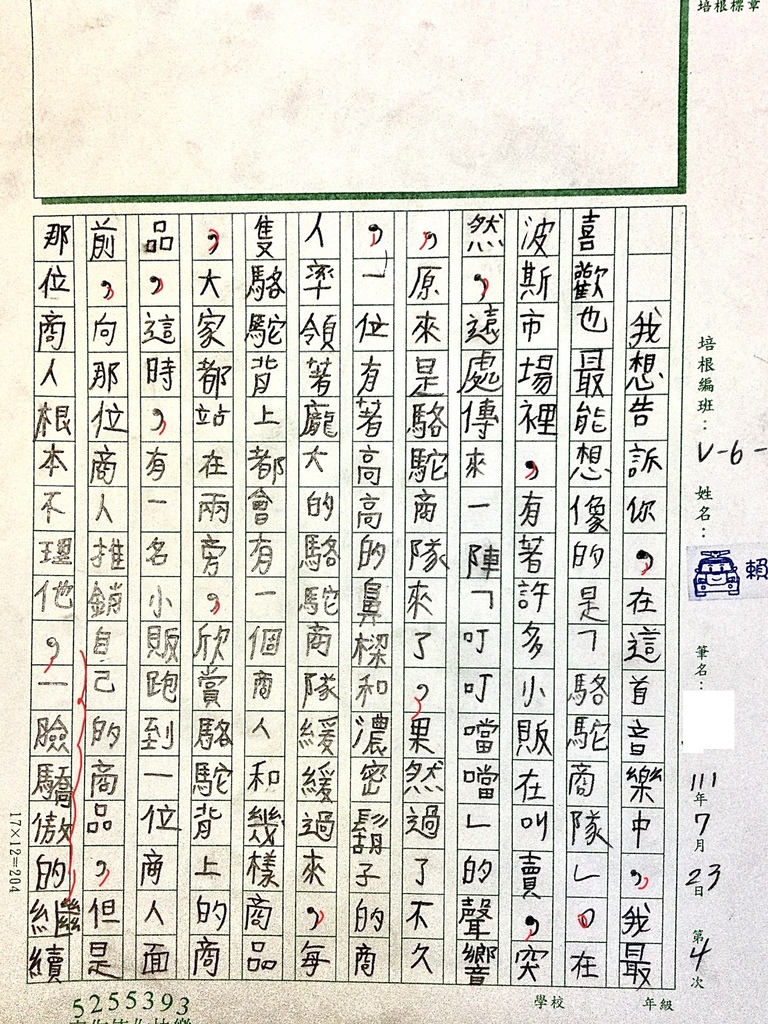 培根標章
培根編班：V-6-
姓名：賴
筆名：
111年7月23日 第4次
學校 年級
我想告訴你，在這首音樂中，我最
喜歡也最能想像的是「駱駝商隊」。在
波斯市場裡，有著許多小販在叫賣，突
然，遠處傳來一陣「叮叮噹噹」的聲響
，原來是駱駝商隊來了，果然過了不久
，一位有著高高的鼻樑和濃密鬍子的商
人率領著龐大的駱駝商隊緩緩過來，每
隻駱駝背上都會有一個商人和幾樣商品
，大家都站在兩旁，欣賞駱駝背上的商
品，這時，有一名小販跑到一位商人面
前，向那位商人推銷自己的商品，但是
那位商人根本不理他，一臉驕傲的繼續
17×12=204
5255393